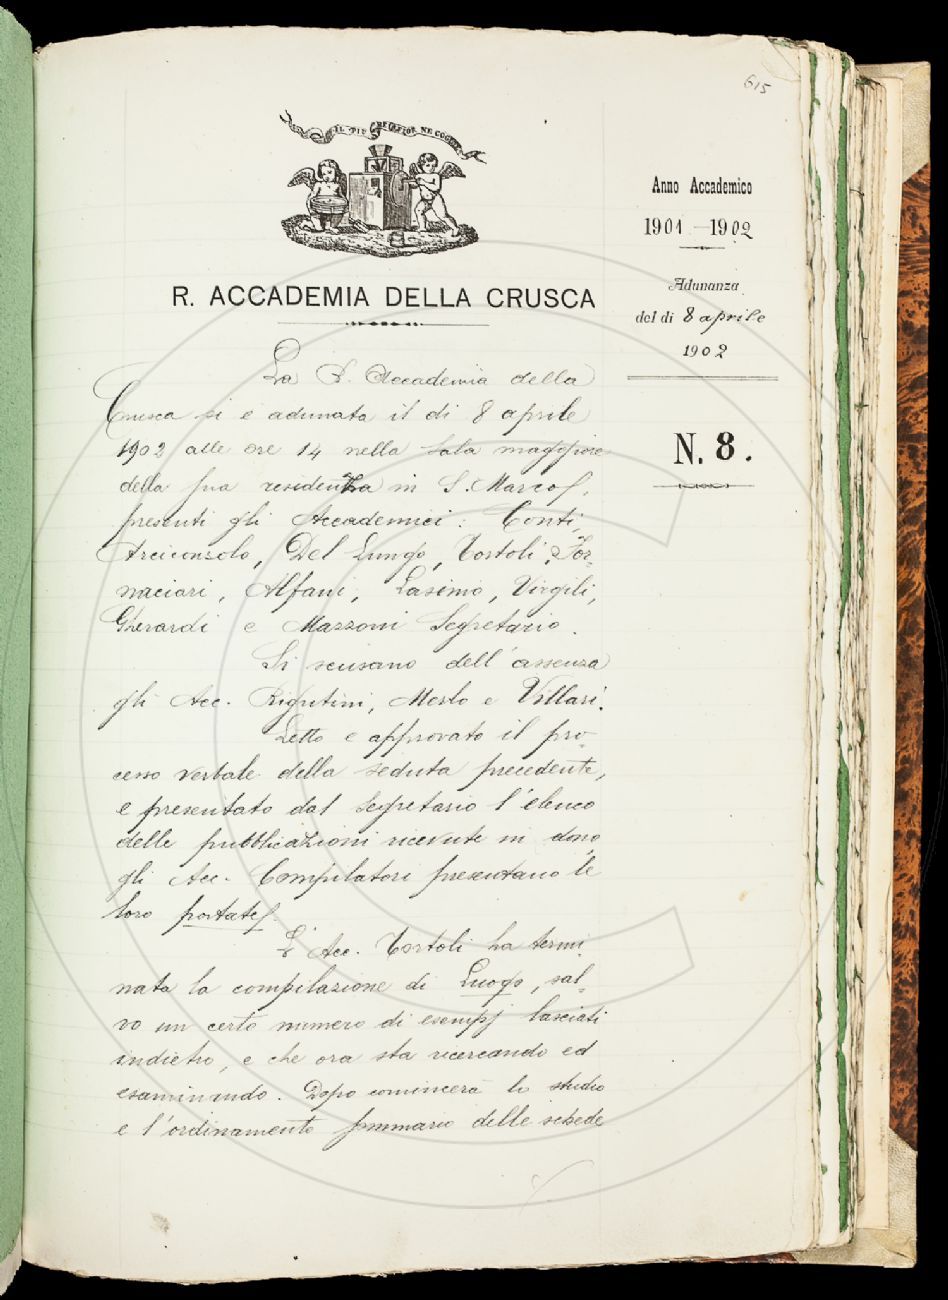 615
IL PIÙ BEL FIOR NE COGLIE
Anno Accademico
1901-1902
Adunanza
del dì 8 aprile
1902
N. 8.
R. ACCADEMIA DELLA CRUSCA
La R. Accademia della
Crusca si è adunata il dì 8 aprile
1902 alle ore 14 nella sala maggiore
della sua residenza in S. Marco,
presenti gli Accademici: Conti,
Arciconsolo, Del Lungo, Tortoli, For-
naciari, Alfani, Lasinio, Virgili,
Gherardi e Mazzoni Segretario.
Si scusano dell'assenza
gli Acc. Rigutini, Merlo e Villari.
Letto e approvato il pro-
cesso verbale della seduta precedente,
e presentato dal Segretario l'elenco
delle pubblicazioni ricevute in dono,
gli Acc. Compilatori presentano le
loro portate.
L'Acc. Tortoli ha termi-
nata la compilazione di Luogo, sal-
vo un certo numero di esempj lasciati
indietro, e che ora sta ricercando ed
esaminando. Dopo comincerà lo studio
e l'ordinamento sommario delle schede